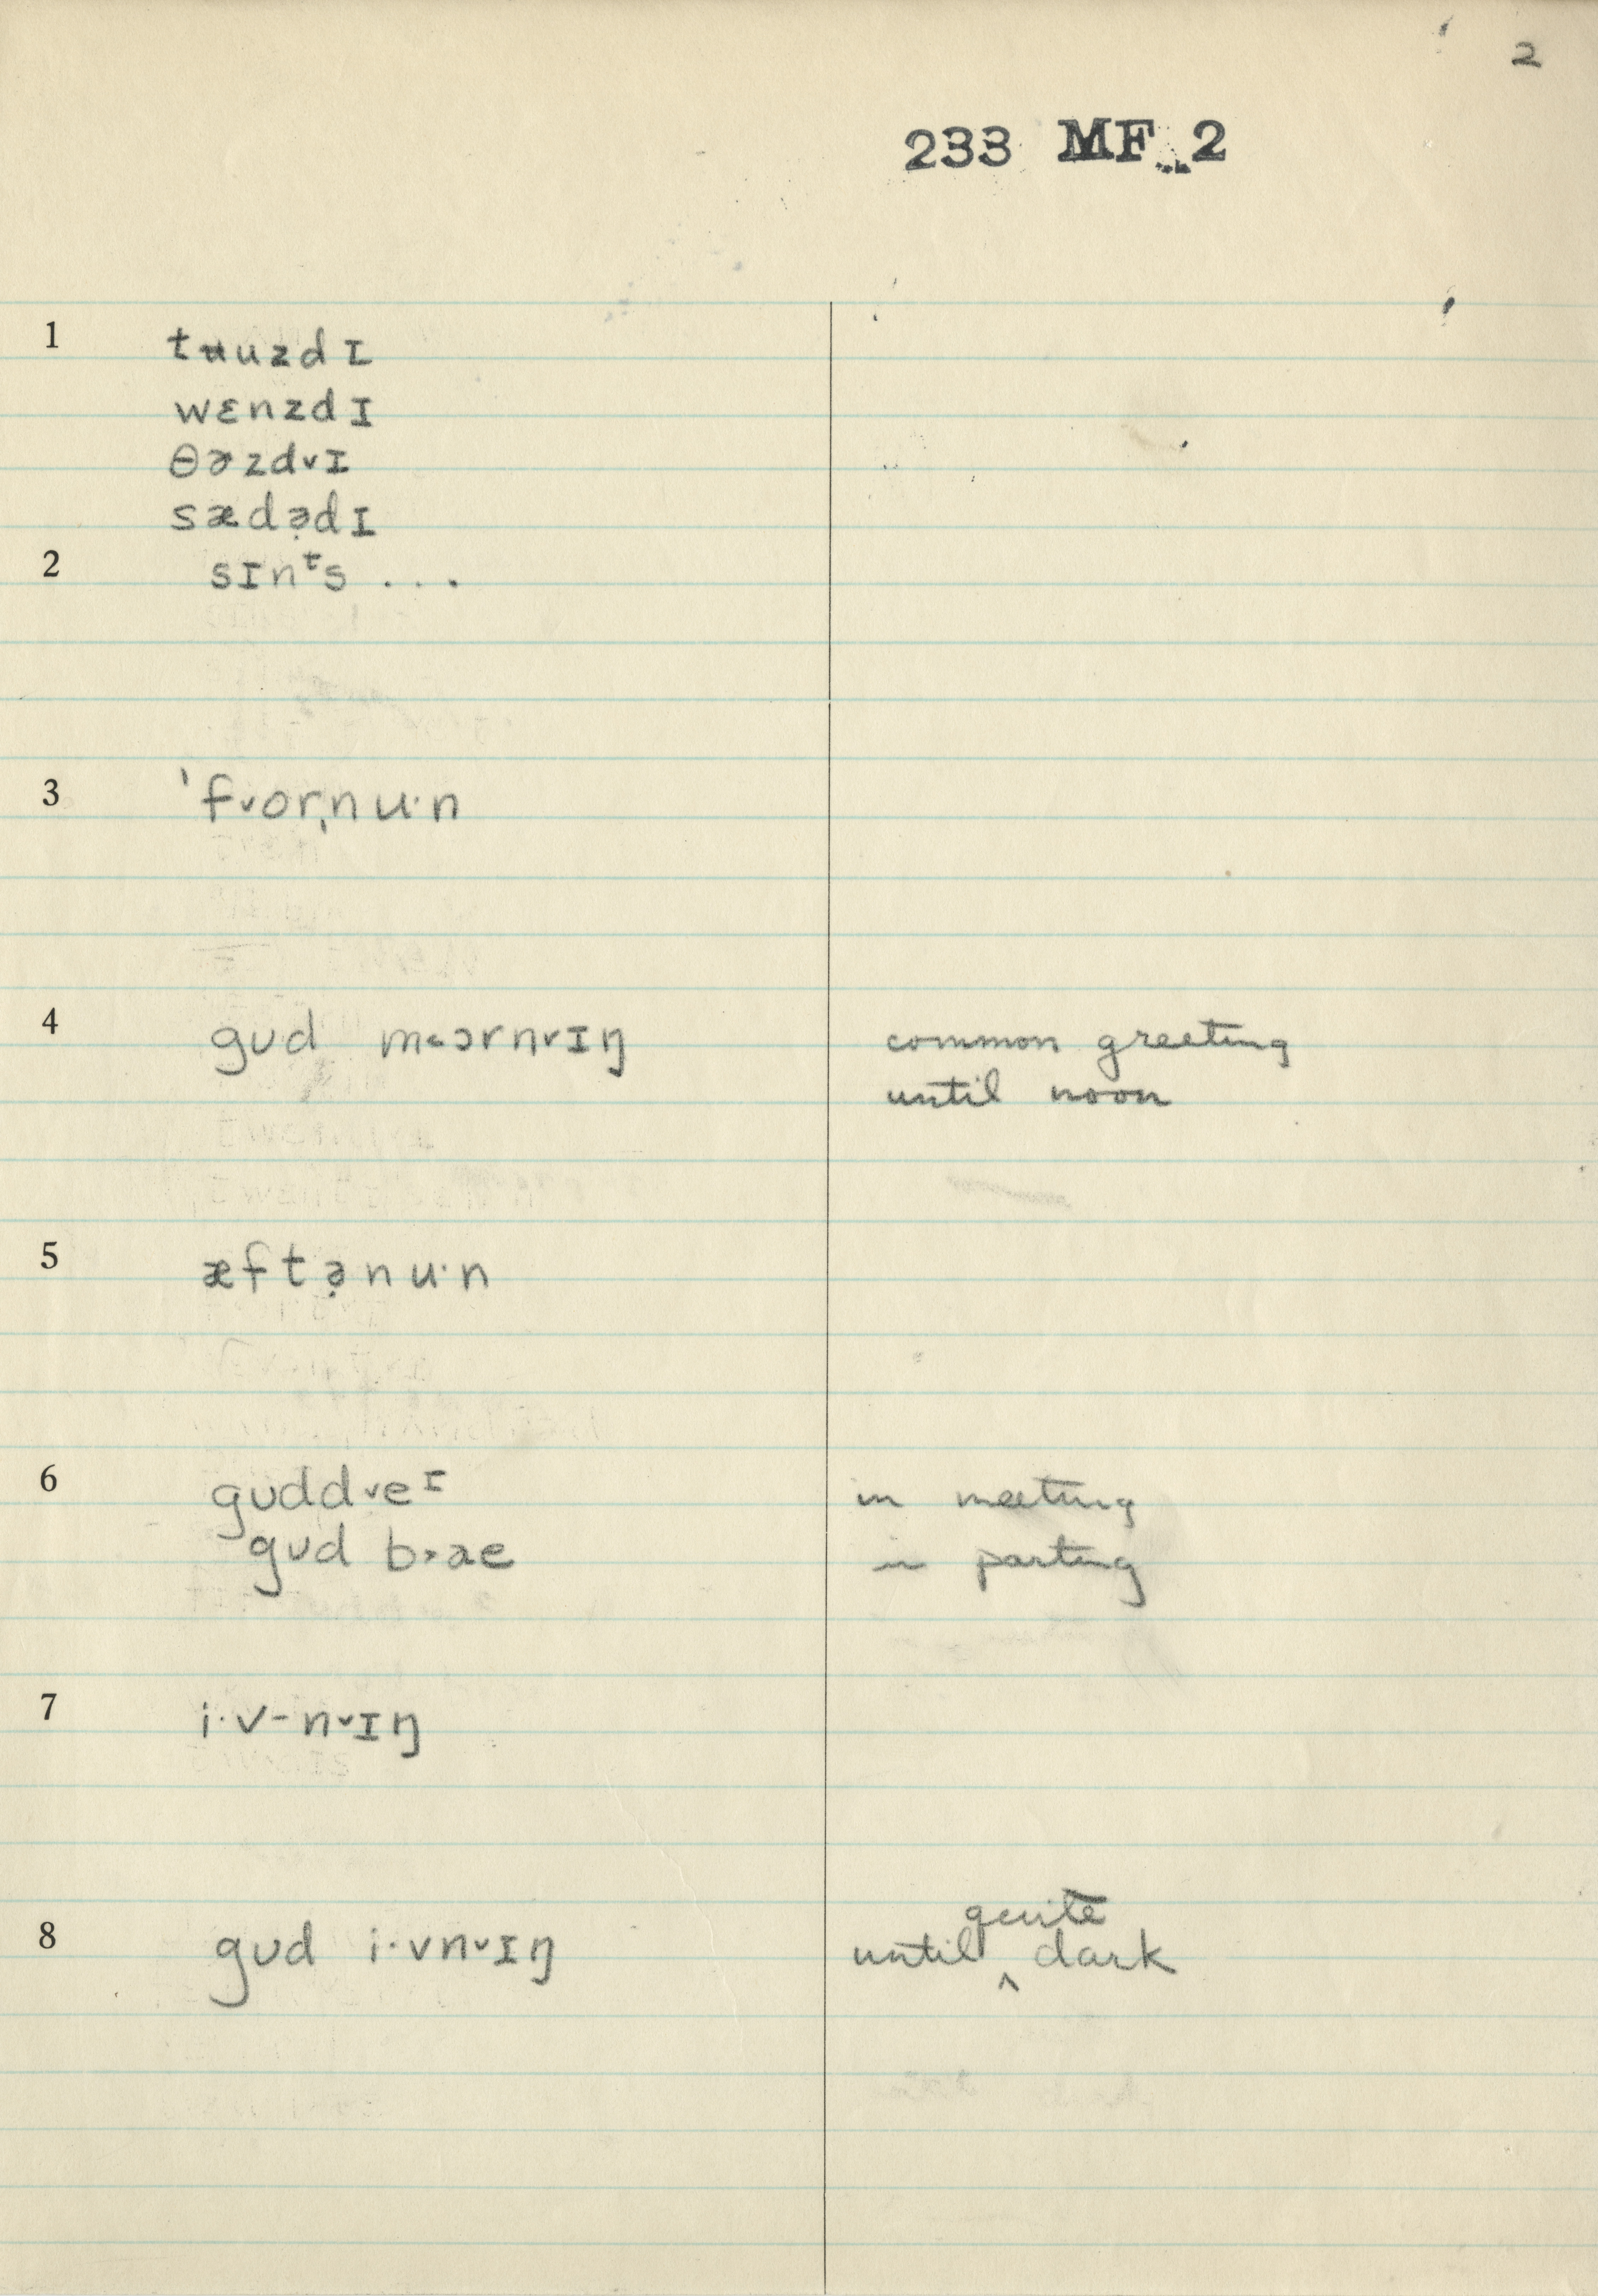 2
233 MF 2
1 tʉuzdɪ
wɛnzdɪ
θɚzdvɪ
sædə̣dɪ
2 sɪnᵗs ...
3 ˈfvorˌnu·n
4 gʊd m<ɔrnvɪŋ common greeting
until noon
5 æftə̣nu·n
6 gʊddveᶦ in meeting
gʊd b>ae in parting
7 i·v-nvɪŋ
8 gʊd i·vnvɪŋ until quite dark